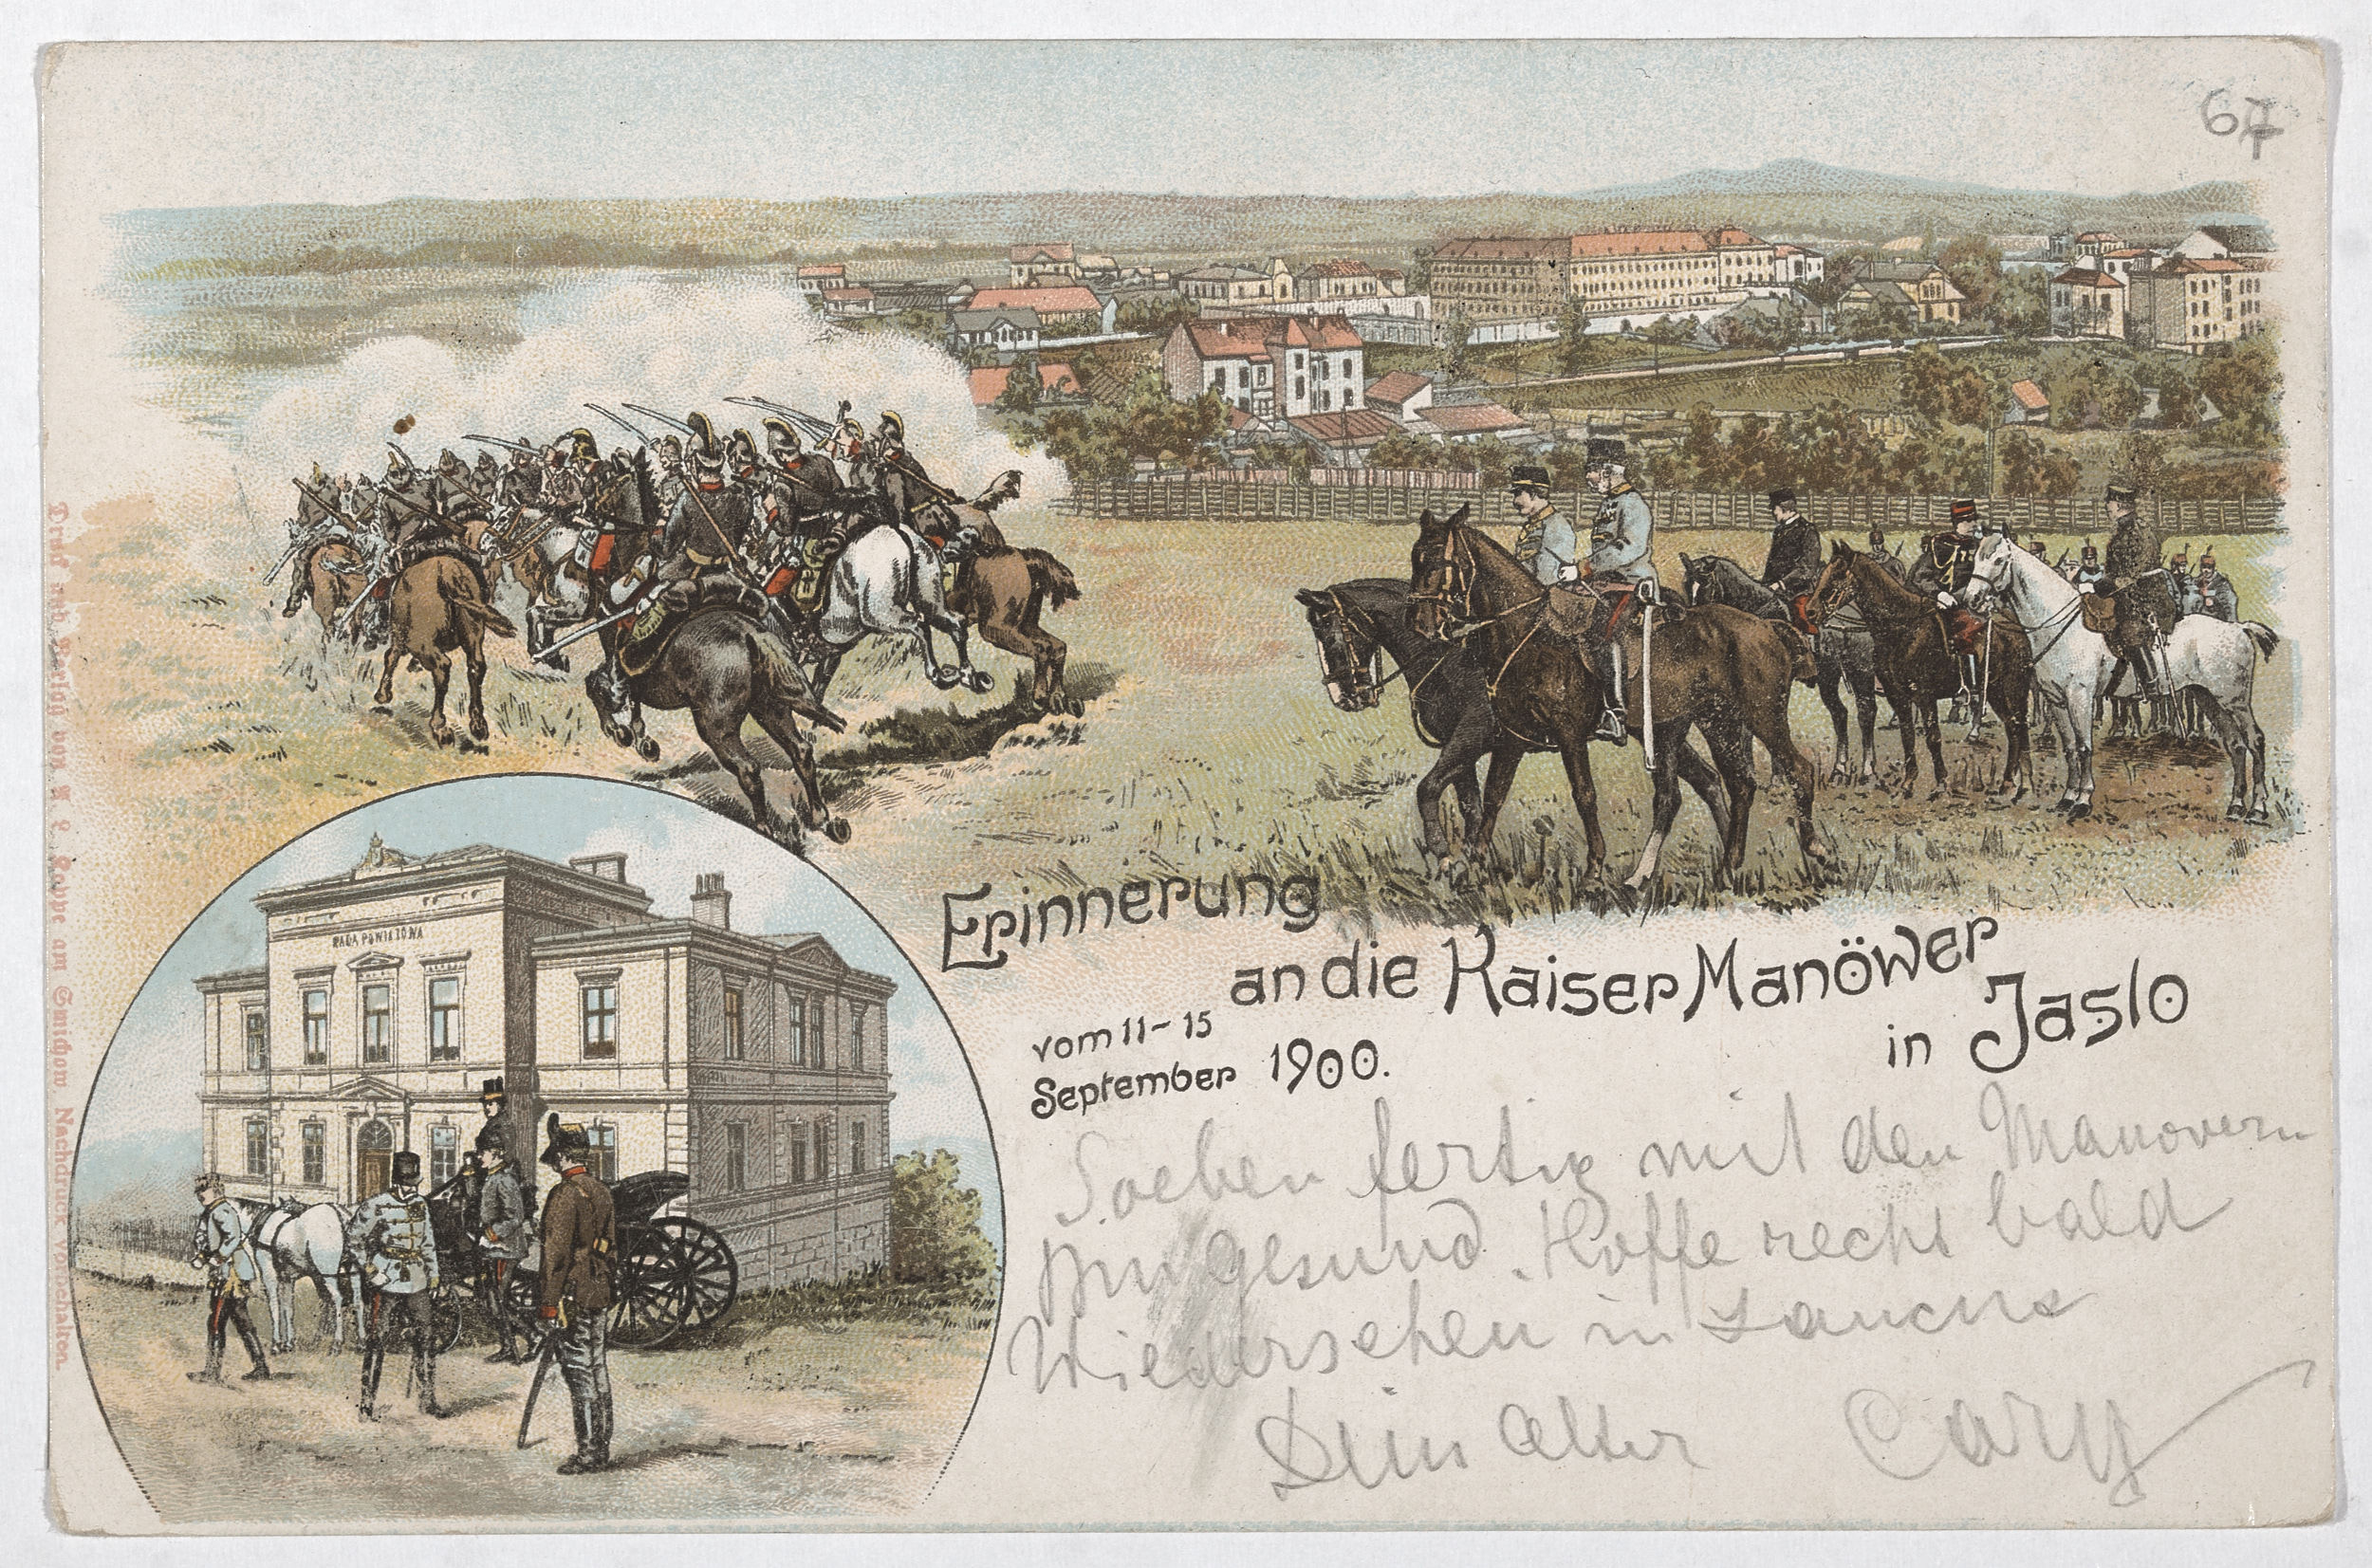 67
RADA POWIATOWA
Erinnerung
an die Kaiser Manöwer
in Jaslo
vom 11-15
September 1900.
Soeben fertig mit den Manövern
bin gesund. Hoffe recht bald
Wiedersehen in
Dein alter Cary
Druck und Verlag von K. L. am Smichow Nachdruck vorbehalten.